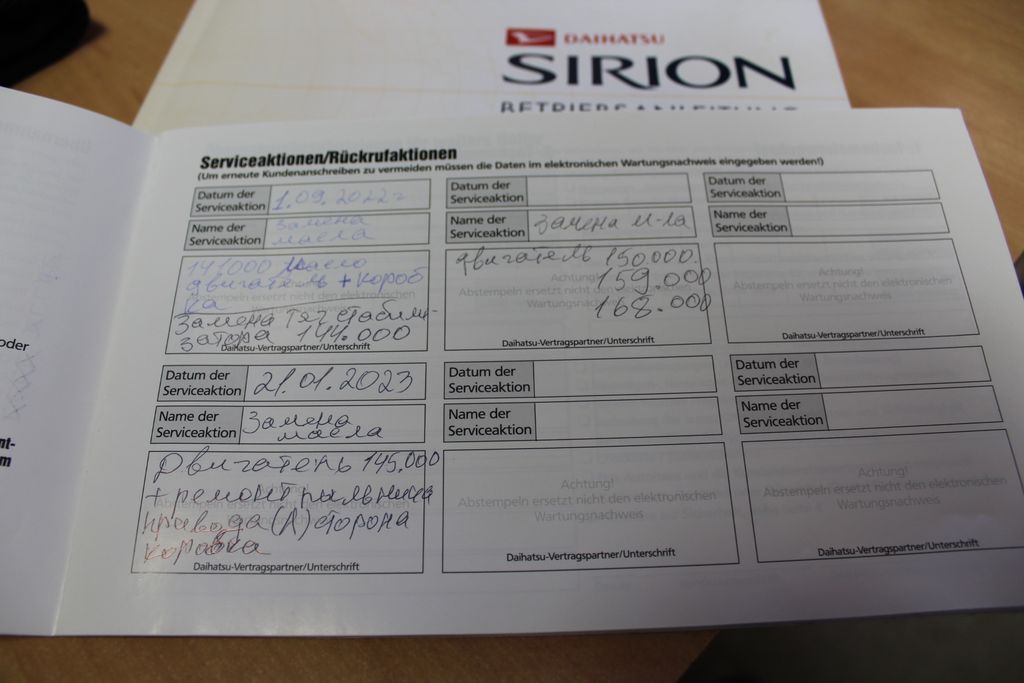 DAIHATSU
SIRION
BETRIEBSANLEITUNG
Serviceaktionen/Rückrufaktionen
(Um erneute Kundenanschreiben zu vermeiden müssen die Daten im elektronischen Wartungsnachweis eingegeben werden!)
Datum der
Serviceaktion
1.09.2022г
Name der
Serviceaktion
Замена
масла
141000 Масло
двигатель + короб
ка
Замена тяг стабили-
затора 144.000
Daihatsu-Vertragspartner/Unterschrift
Datum der
Serviceaktion
Name der
Serviceaktion
Замена м-ла
двигатель 150.000.
159.000
168.000
Achtung!
Abstempeln ersetzt nicht den elektronischen
Wartungsnachweis
Daihatsu-Vertragspartner/Unterschrift
Datum der
Serviceaktion
Name der
Serviceaktion
Achtung!
Abstempeln ersetzt nicht den elektronischen
Wartungsnachweis
Daihatsu-Vertragspartner/Unterschrift
Datum der
Serviceaktion
21.01.2023
Name der
Serviceaktion
Замена
масла
Двигатель 145.000
+ ремонт пыльника
привода (Л) сторона
коробка
Daihatsu-Vertragspartner/Unterschrift
Datum der
Serviceaktion
Name der
Serviceaktion
Achtung!
Abstempeln ersetzt nicht den elektronischen
Wartungsnachweis
Daihatsu-Vertragspartner/Unterschrift
Datum der
Serviceaktion
Name der
Serviceaktion
Achtung!
Abstempeln ersetzt nicht den elektronischen
Wartungsnachweis
Daihatsu-Vertragspartner/Unterschrift
oder
nt-
m